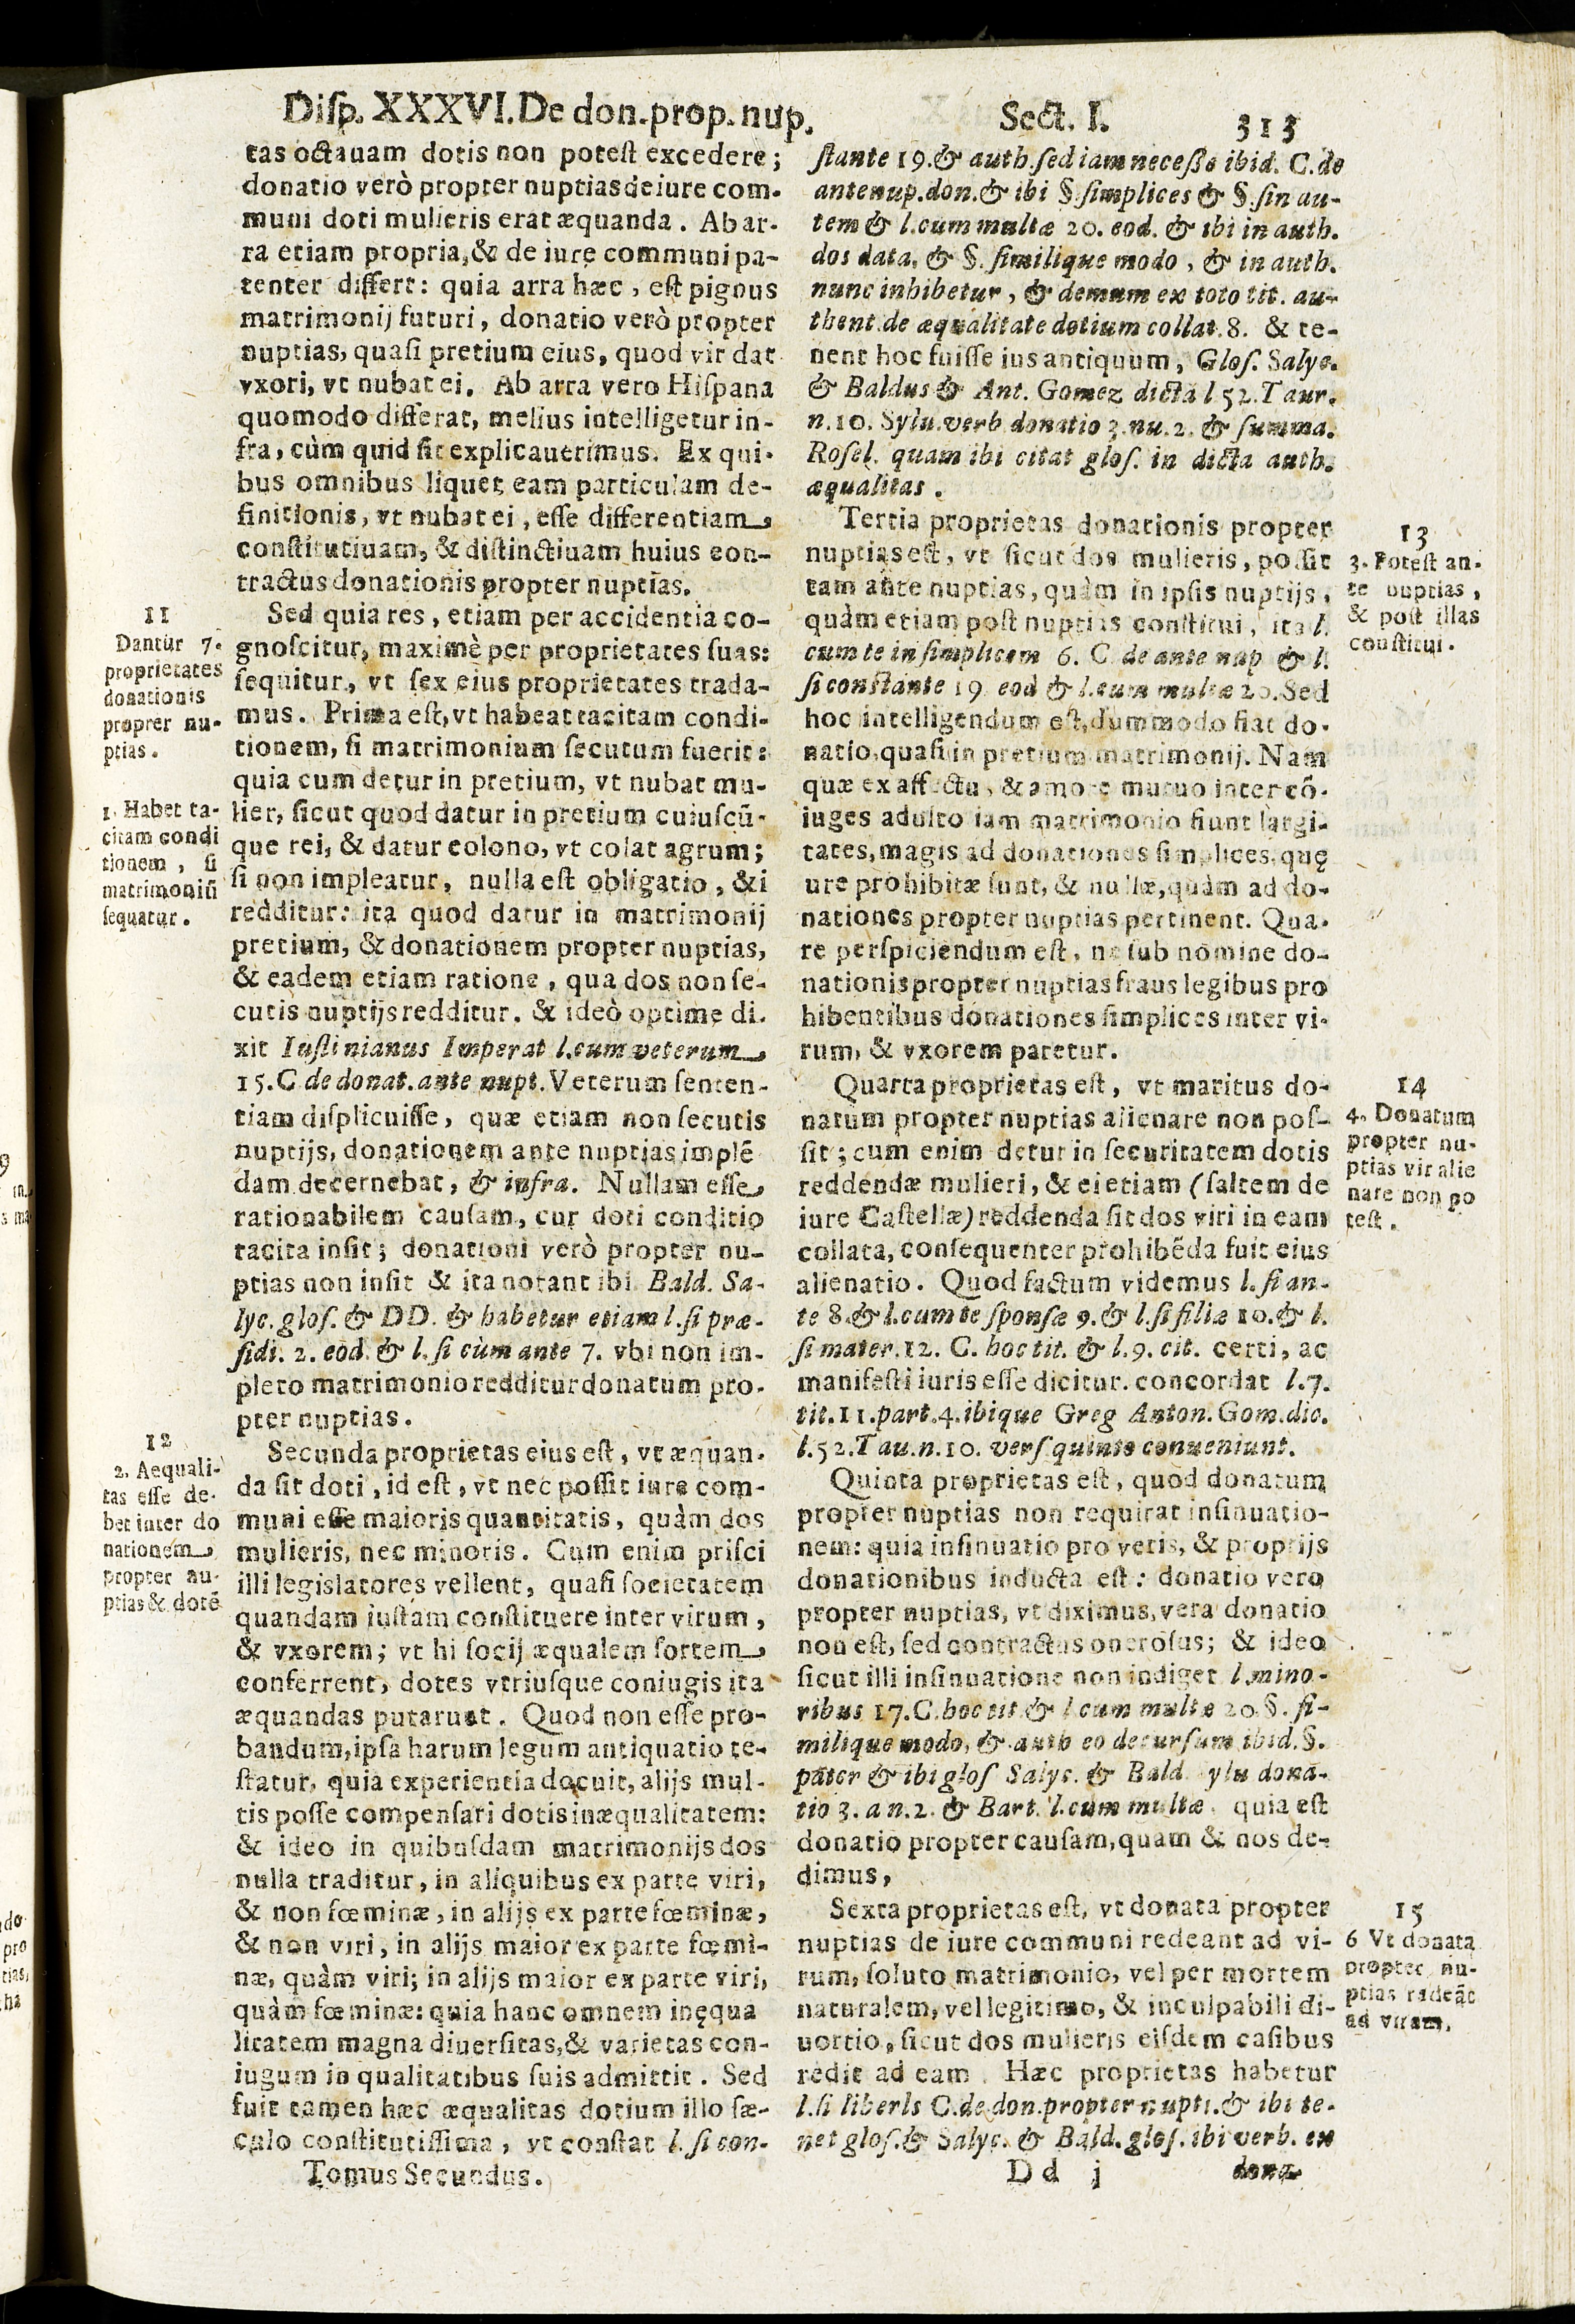 Diſp. XXXVI. De don. prop. nup. Sect. I. 313
tas octauam dotis non poteſt excedere;
donatio verò propter nuptias de iure com-
muni doti mulieris erat æquanda. Ab ar-
ra etiam propria, & de iure communi pa-
tenter differt: quia arra hæc, eſt pignus
matrimonij futuri, donatio verò propter
nuptias, quaſi pretium eius, quod vir dat
vxori, vt nubat ei. Ab arra vero Hiſpana
quomodo differat, melius intelligetur in-
fra, cùm quid ſit explicauerimus. Ex qui-
bus omnibus liquet eam particulam de-
finitionis, vt nubat ei, eſſe differentiam
conſtitutiuam, & diſtinctiuam huius con-
tractus donationis propter nuptias.
11
Dantur 7.
proprietates
donationis
proprer nu-
ptias.
Sed quia res, etiam per accidentia co-
gnoſcitur, maximè per proprietates ſuas:
ſequitur, vt ſex eius proprietates trada-
mus. Prima eſt, vt habeat tacitam condi-
tionem, ſi matrimonium ſecutum fuerit:
quia cum detur in pretium, vt nubat mu-
1. Habet ta-
citam condi
tionem, ſi
matrimoniũ
ſequatur.
lier, ſicut quod datur in pretium cuiuſcũ-
que rei, & datur colono, vt colat agrum;
ſi non impleatur, nulla eſt obligatio, & i
redditur: ita quod datur in matrimonij
pretium, & donationem propter nuptias,
& eadem etiam ratione, qua dos non ſe-
cutis nuptijs redditur. & ideò optime di-
xit Iuſtinianus Imperat l. cum veterum
15. C de donat. ante nupt. Veterum ſenten-
tiam diſplicuiſſe, quæ etiam non ſecutis
nuptijs, donationem ante nuptias implẽ
dam decernebat, & infra. Nullam eſſe
rationabilem cauſam, cur doti conditio
tacita inſit; donationi verò propter nu-
ptias non inſit & ita notant ibi Bald. Sa-
lyc. gloſ. & DD. & habetur etiam l. ſi præ-
ſidi. 2. eod. & l. ſi cùm ante 7. vbi non im-
pleto matrimonio redditur donatum pro-
pter nuptias.
12
2. Aequali-
tas eſſe de-
bet inter do
nationem
propter nu-
ptias & dotẽ
Secunda proprietas eius eſt, vt æquan-
da ſit doti, id eſt, vt nec poſſit iure com-
muni eſſe maioris quantitatis, quàm dos
mulieris, nec minoris. Cum enim priſci
illi legislatores vellent, quaſi ſocietatem
quandam iuſtam conſtituere inter virum,
& vxorem; vt hi ſocij æqualem ſortem
conferrent, dotes vtriuſque coniugis ita
æquandas putarunt. Quod non eſſe pro-
bandum, ipſa harum legum antiquatio te-
ſtatur, quia experientia docuit, alijs mul-
tis poſſe compenſari dotis inæqualitatem:
& ideo in quibuſdam matrimonijs dos
nulla traditur, in aliquibus ex parte viri,
& non fœminæ, in alijs ex parte fœminæ,
& non viri, in alijs maior ex parte fœmi-
næ, quàm viri; in alijs maior ex parte viri,
quàm fœminæ: quia hanc omnem inęqua
litatem magna diuerſitas, & varietas con-
iugum in qualitatibus ſuis admittit. Sed
fuit tamen hæc æqualitas dotium illo ſæ-
culo conſtitutiſſima, vt conſtat l. ſi con-
Tomus Secundus.
ſtante 19. & auth. ſed iam neceße ibid. C. de
ante nup. don. & ibi §. ſimplices & §. ſin au-
tem & l. cum multæ 20. eod. & ibi in auth.
dos data, & §. ſimilique modo, & in auth.
nunc inhibetur, & demum ex toto tit. au-
thent. de æqualitate dotium collat. 8. & te-
nent hoc fuiſſe ius antiquum, Gloſ. Salyc.
& Baldus & Ant. Gomez dicta l 52. Taur.
n. 10. Sylu. verb donatio 3. nu. 2. & ſumma.
Roſel. quam ibi citat gloſ. in dicta auth.
æqualitas.
Tertia proprietas donationis propter
nuptias eſt, vt ſicut dos mulieris, poſſit
tam ante nuptias, quàm in ipſis nuptijs,
quàm etiam poſt nuptias conſtitui, ita l.
cum te in ſimplicem 6. C. de ante nup & l.
ſi conſtante 19 eod & l. cum multæ 20. Sed
hoc intelligendum eſt, dummodo fiat do-
natio, quaſi in pretium matrimonij. Nam
quæ ex affectu, & amore mutuo inter cõ-
iuges adulto iam matrimonio fiunt largi-
tates, magis ad donationes ſimplices, quę
ure prohibitæ ſunt, & nullæ, quàm ad do-
nationes propter nuptias pertinent. Qua-
re perſpiciendum eſt, ne ſub nomine do-
nationis propter nuptias fraus legibus pro
hibentibus donationes ſimplices inter vi-
rum, & vxorem paretur.
13
3. Poteſt an-
te nuptias,
& poſt illas
conſtitui.
Quarta proprietas eſt, vt maritus do-
natum propter nuptias alienare non poſ-
ſit; cum enim detur in ſecuritatem dotis
reddendæ mulieri, & ei etiam (ſaltem de
iure Caſtellæ) reddenda ſit dos viri in eam
collata, conſequenter prohibẽda fuit eius
alienatio. Quod factum videmus l. ſi an-
te 8. & l. cum te ſponſæ 9. & l. ſi filiæ 10. & l.
ſi mater. 12. C. hoc tit. & l. 9. cit. certi, ac
manifeſti iuris eſſe dicitur. concordat l. 7.
tit. 11. part. 4. ibique Greg Anton. Gom. dic.
l. 52. Tau. n. 10. verſ quinto conueniunt.
14
4. Donatum
propter nu-
ptias vir alie
nare non po
teſt.
Quinta proprietas eſt, quod donatum
propter nuptias non requirat inſinuatio-
nem: quia inſinuatio pro veris, & proprijs
donationibus inducta eſt: donatio vero
propter nuptias, vt diximus, vera donatio
non eſt, ſed contractus oneroſus; & ideo
ſicut illi inſinuatione non indiget l. mino-
ribus 17. C. hoc tit. & l cum multæ 20. §. ſi-
milique modo, & auth eo decurſum ibid. §.
pater & ibi gloſ Salyc. & Bald. ylu dona-
tio 3. a n. 2. & Bart. l. cum multæ. quia eſt
donatio propter cauſam, quam & nos de-
dimus,
Sexta proprietas eſt, vt donata propter
nuptias de iure communi redeant ad vi-
rum, ſoluto matrimonio, vel per mortem
naturalem, vel legitimo, & inculpabili di-
uortio, ſicut dos mulieris eiſdem caſibus
redit ad eam. Hæc proprietas habetur
l. ſi liberls C. de don. propter nupti. & ibi te-
net gloſ. & Salyc. & Bald. gloſ. ibi verb. ex
15
6 Vt donata
propter nu-
ptias redeãt
ad virum.
D d j dona-